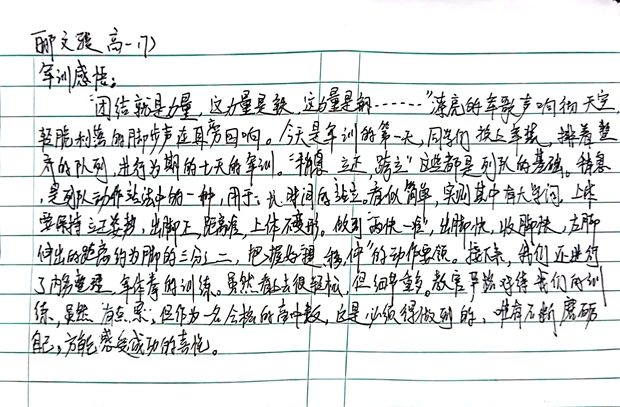 郦文强 高一(7)
军训感悟:
"团结就是力量,这力量是铁,这力量是钢……"漂亮的军歌声响彻天空,
轻脆利落的脚步声在耳旁回响。今天是军训的第一天,同学们换上军装,排着整
齐的队列,进行为期的七天的军训。"稍息、立正、跨立"这些都是列队的基础。稍息
是列队动作站法中的一种,用于:长时间的站立。看似简单,实则其中有大学问,上体
要保持立正姿势,出脚正,距离准,上体不变形。做到"两快一准",出脚快,收脚快,左脚
伸出的距离约为脚的三分之二,把握好"稍停"的动作要领。接下来,我们还进行
了内务整理、军体拳的训练。虽然看上去很轻松,但细节重多。教官严格对待我们的训
练,虽然有点累,但作为一名合格的高中生,这是必须得做到的,唯有不断磨砺
自己,方能感受成功的喜悦。